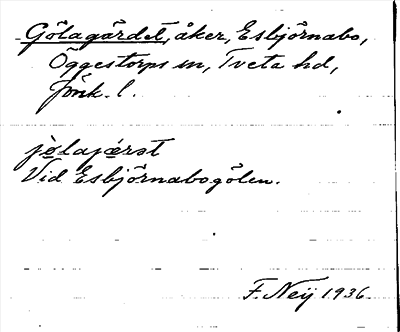 Gölagärdet, åker, Esbjörnabo,
Öggestorps sn, Tveta hd,
Jönk. l.
jølajærət
Vid Esbjörnabogölen.
F. Neij 1936